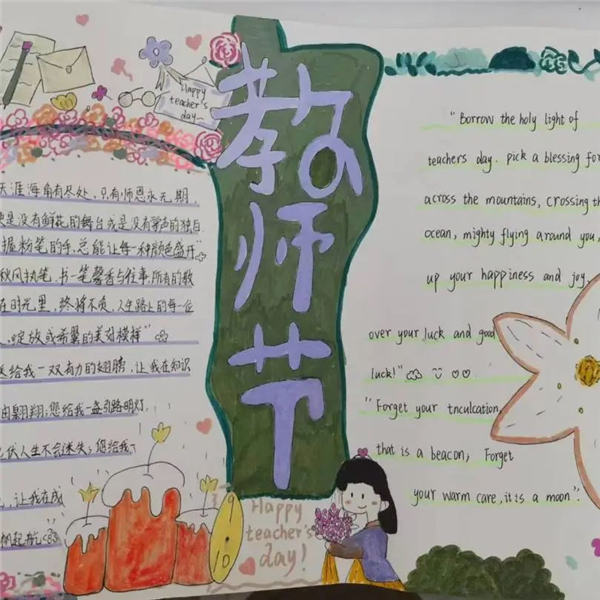 Happy
teacher's
day
教师节
天涯海角有尽处，只有师恩无期，
是没有鲜花的舞台或是没有掌声的独白
握粉笔的手，总能让每一种颜色盛开"
秋风执笔，书一笔馨香与往事，所有的教
在时光里，终将不负，人生路上的每一位
绽放成希冀的美刻模样"
给我一双有力的翅膀，让我在知识
翱翔；您给我一盏引路明灯，
人生不会迷失；您给我一
，让我在成
帆起航
"Borrow the holy light of
teachers day. pick a blessing for
across the mountains, crossing th
ocean, mighty flying around you,
up your happiness and joy,
over your luck and good
luck!"
"Forget your tnculcation,
that is a beacon, Forget
your warm care, it is a moon".
Happy
teacher's
day!